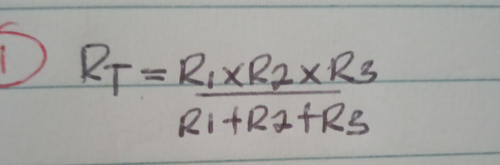 1
RT = R1 x R2 x R3
R1 + R2 + R3